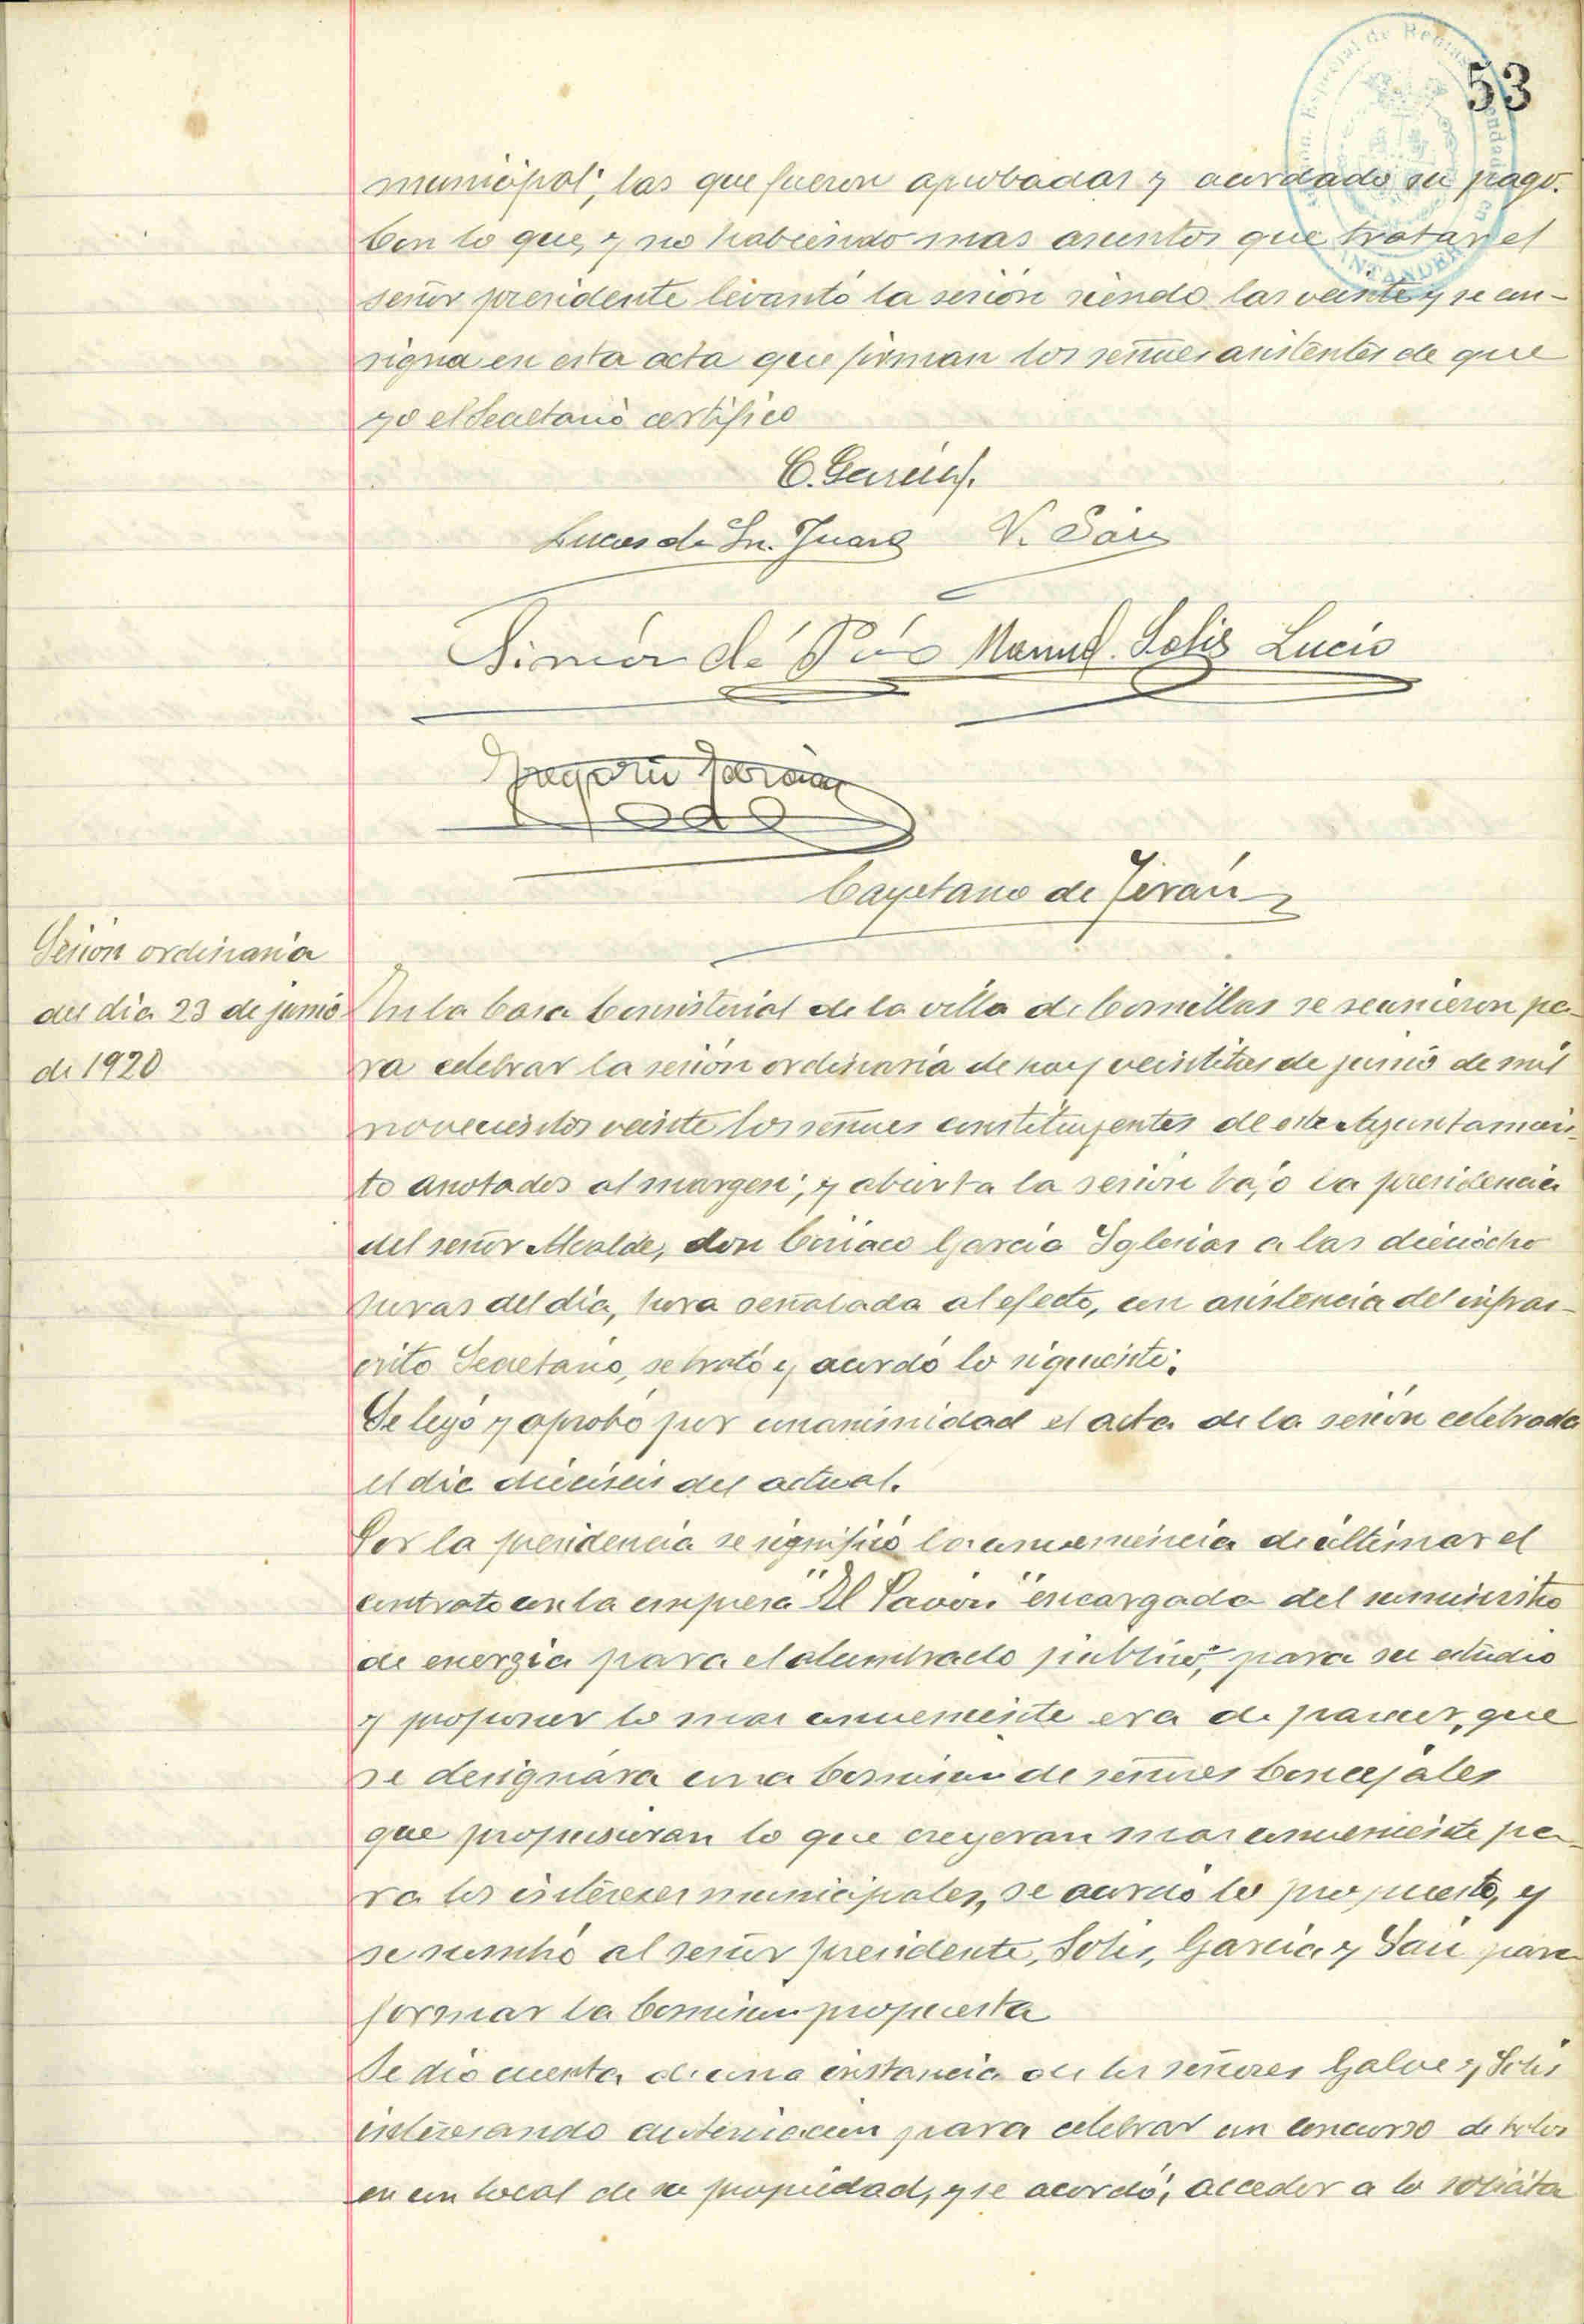 53
municipal; las que fueron aprobadas y acordado su pago.
Con lo que, y no habiendo mas asuntos que tratar el
señor presidente levantó la sesión siendo las veinte y se con-
signa en esta acta que firman los señores asistentes de que
yo el Secretario certifico
C. García
Lucas de Sn. Juan V.
Simón de Manuel Solis Lucio
Gregorio García
Cayetano de Terán
Sesión ordinaria
del dia 23 de junio
de 1920
En la Casa Consistorial de la villa de Comillas se reunieron pa-
ra celebrar la sesión ordinaria de hoy veintitres de junio de mil
novecientos veinte los señores constituyentes de este Ayuntamien-
to anotados al margen; y abierta la sesión bajo la presidencia
del señor Alcalde, don Ciriaco García Iglesias a las dieciocho
horas del dia, hora señalada al efecto, con asistencia del infras-
crito Secretario, se trató y acordó lo siguiente:
Se leyó y aprobó por unanimidad el acta de la sesión celebrada
el dia dieciseis del actual.
Por la presidencia se significó la conveniencia de ultimar el
contrato con la empresa "El Pavón" encargada del suministro
de energia para el alumbrado publico, para su estudio
y proponer lo mas conveniente era de parecer, que
se designára una Comision de señores Concejales
que propusieran lo que creyeran mas conveniente pa-
ra los intereses municipales, se acordó lo propuesto, y
se nombró al señor presidente, Solis, García y para
formar la Comision propuesta
Se dio cuenta de una instancia de los señores Galve y Solis
interesando autorizacion para celebrar un concurso de bolos
en un local de su propiedad, y se acordó, acceder a lo solicita